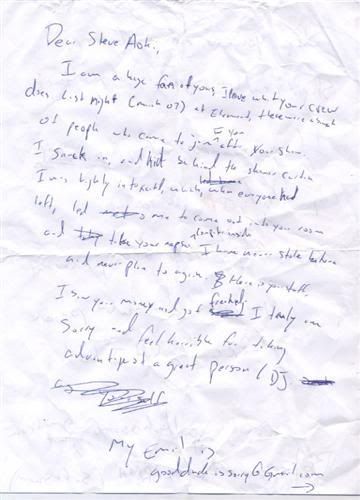 Dear Steve Aoki,
I am a huge fan of yours I love what your crew
does. Last night (march 07) at Element, there were a bunch
of people who came to join you after your show.
I snuck in, and hid behind the shower curtain
I was highly intoxicated, which, when everyone had
left, led me to come out into your room
and take your laptop. I have never stole before
and never plan to again. Here is your stuff.
I saw your money and got freaked. I truly am
sorry and feel horrible for taking
advantage of a great person / DJ
My Email is
gooddudeissorry@Gmail.com